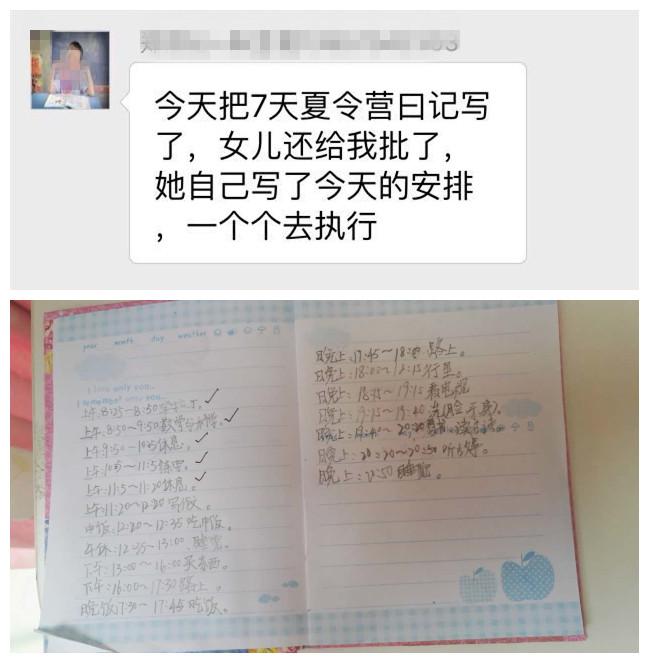 今天把7天夏令营日记写
了，女儿还给我批了，
她自己写了今天的安排
，一个个去执行
year month day weather
I love only you..
I remember only you..
上午:8:25~8:50
上午:8:50~9:50数学
上午9:50~10:5休息。
上午:10:5~11:5练
上午:11:5~11:20休息。
上午:11:20~12:20写
中饭:12:20~12:35吃中饭。
午休:12:35~13:00、睡觉。
下午:13:00~16:00买东西。
下午:16:00~17:30路上。
晚饭17:30~17:45吃饭。
晚上:17:45~18:00路上。
晚上:18:00~18:15
晚上:18:15~19:15看电视
晚上:19:15~19:40洗
晚上:19:40~20:20
晚上:20:20~20:50听
晚上:20:50睡觉。